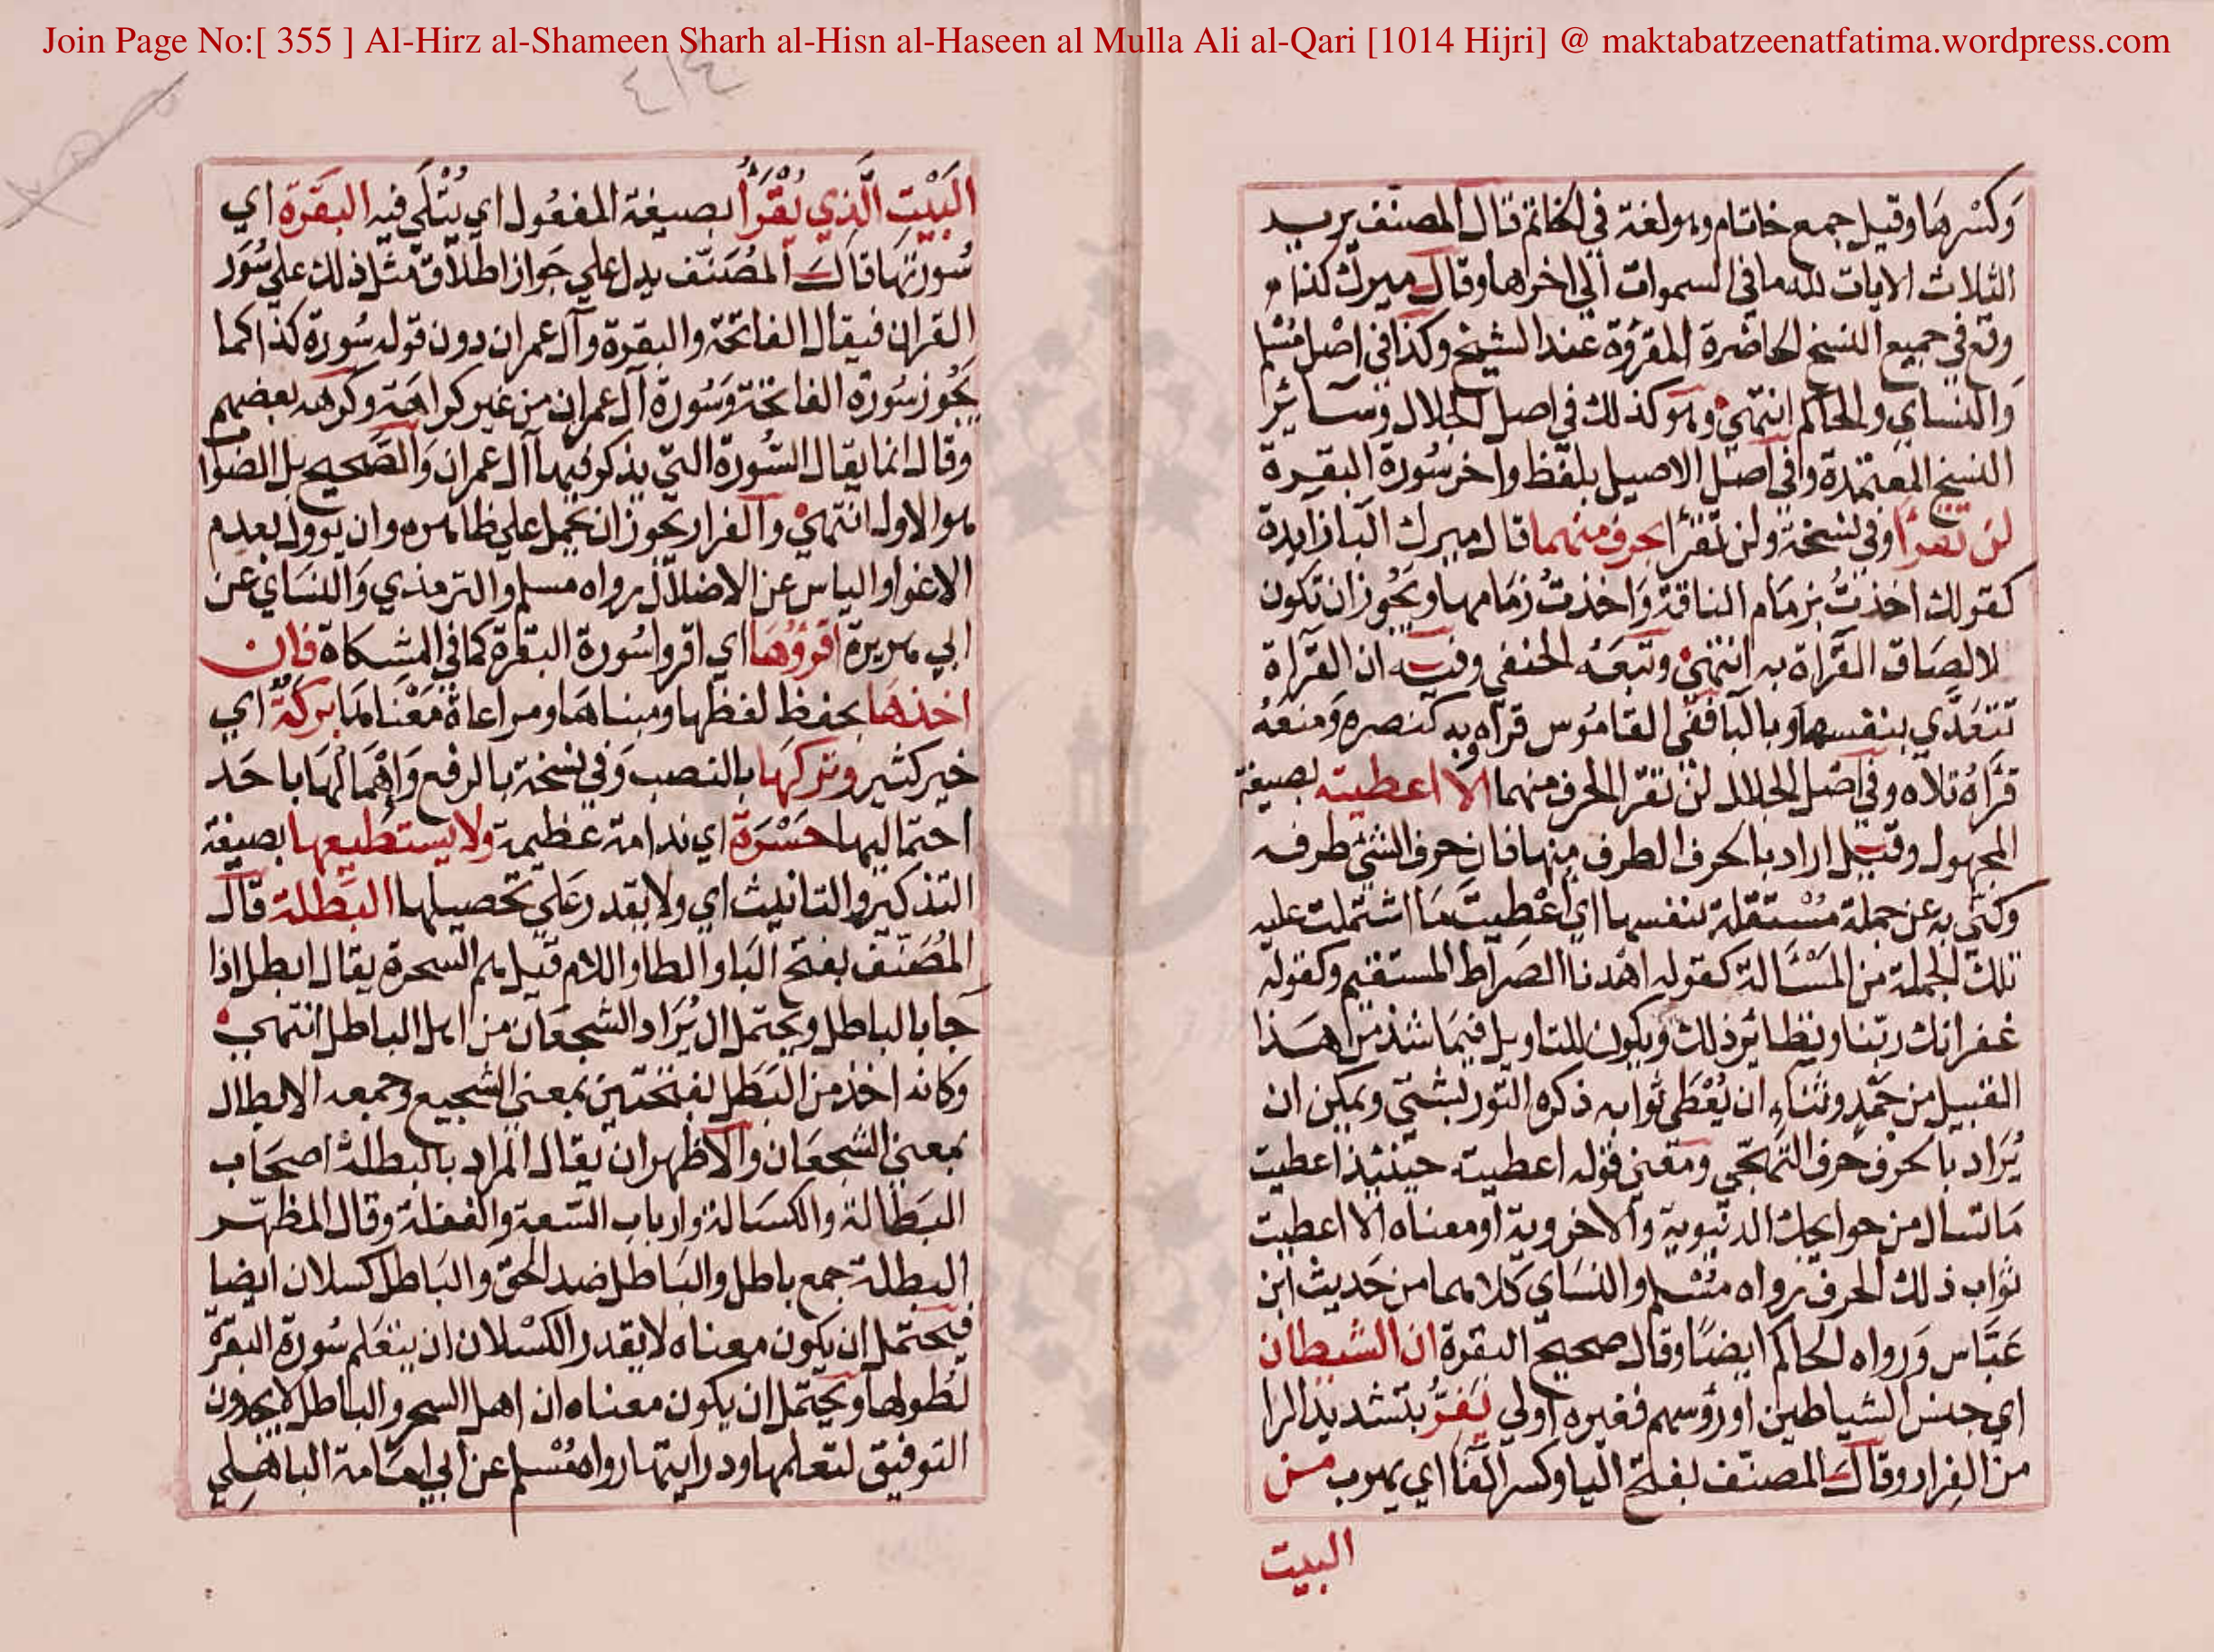 Join Page No:[ 355 ] Al-Hirz al-Shameen Sharh al-Hisn al-Haseen al Mulla Ali al-Qari [1014 Hijri] @ maktabatzeenatfatima.wordpress.com
٤١٤
وَكسْرهَا وقيل جمع خاتام وهو لغة في الخاتم قال المصنف يريد
الثلاث الايات لله ما في السموات الى اخرها وقال ميرك كذا
وقع في جميع النسخ الحاضرة المقرؤة عند الشيخ وكذا في اصل مسلم
وَالنساي والحاكم انتهي وهو كذلك في اصل الجلال وسائر
النسخ المعتمدة وفي اصل الاصيل بلفظ واخر سُورة البقرة
لن تقرأ وفي نسخة ولن تقرأ بحرف منهما قال ميرك البا زايدة
كقولك اخذتُ بزمَام الناقة وَاخذتُ زمَامها ويَجُوز ان تكون
لالصَاق القَراة به انتهي وتبعَهُ الحنفي وفيه ان القَراة
تتعَدَّي بنفسها وبالبا ففي القامُوس قرأه وبه كنصره وَمنعَهُ
قَرأهُ تلاه وفي اصْل الجلال لن تقرا الحرف منهما الا اعطيته بصيغة
المجهول وقيل اراد بالحرف الطرف منها فان حرف الشئ طرفه
وكنّي به عن جملة مُسْتقلة بنفسها اي اعْطيتَ مَا اشتملت عليه
تلك الجملة من المَسْالة كقوله اهْدنا الصَراط المستقيم وكقوله
غفرانك ربّنا ونظائر ذلك ويكون التاويل فيمَا شذ من هَذا
القبيل من حَمْدٍ وثناءٍ ان يُعْطَى ثوابه ذكره التور بشتي ويمكن ان
يُرَاد بالحرف حرف التهَجّي وَمعني قوله اعطيته حينئذ اعطيت
مَا تسال من حوايجك الدنيوية والاخروية او معناه الا اعطيت
ثواب ذلك الحرف رواه مُسْلم والنسَاي كلاهما من حَديث ابن
عَبَّاس وَرواه الحاكم ايضًا وقال صحيح البقرة ان الشيطان
اي جنس الشياطين او رؤسهم فغيره اولي يَفرُّ بتشديد الرا
من الفِرار وقال المصنّف بفتح اليا وكسر الفَا اي يهرب من
البيت
البَيْتِ الَّذي يُقْرَأُ بصيغة المفعُول اي يُتْلَى فيه البقَرة اي
سُورتهَا قال المُصَنّف يدل علي جَواز اطلاق مثل ذلك علي سُوَر
القران فيقال الفاتحة والبقرة وآل عمران دون قوله سُورة كذا كما
يجُوز سُورة الفاتحة وَسُورة آل عمران من غير كراهَة وكرهه بعضهم
وقال انما يقال السّورة التي يذكر فيها آل عمران وَالصَّحيح بل الصوا
هو الاول انتهي والفرار يجوز ان يحمل علي ظاهره وان يوول بعدم
الاغوا والياس عن الاضلال رواه مسلم والترمذي وَالنسَاي عن
ابي هريرة اقرؤُهَا اي اقروا سُورة البقرة كما في المشكاة فان
اخذهَا بحفظ لفظها ومبناهَا ومراعاة مَعْناهَا بركَةٌ اي
خير كثير وتركهَا بالنصب وَفي نسخة بالرفع وَاهْمَالهَا باحَد
احتماليها حَسْرَة اي ندامة عَظيمة ولا يستطيعها بصيغة
التذكير والتانيث اي ولا يقدر عَلي تحصيلها البَطلة قال
المُصَنّف بفتح البَا والطا واللام قيل هم السحرة يقال ابطل اذا
جا بالباطل ويحتمل ان يُرَاد الشجعَان من اهل الباطل انتهي
وكانه اخذ من البَطَل بفتحتين بمعني الشجيع وجمعه الابطال
بمعني الشجعَان والاظهر ان يقال المراد بالبطلة اصحَاب
البَطالة والكسَالة وارباب السّعة والغفلة وقال المظهر
البطلة جمع باطل والبَاطل ضد الحق والبَاطل كسلان ايضا
فيحتمل ان يكون معناه لا يقدر الكسْلان ان يتعَلم سُورة البقرة
لطُولهَا ويحتمل ان يكون معناه ان اهل السحر والباطل لا يجدون
التوفيق لتعلمها ودرايتها رواه مُسْلم عن ابي امَامة الباهلي